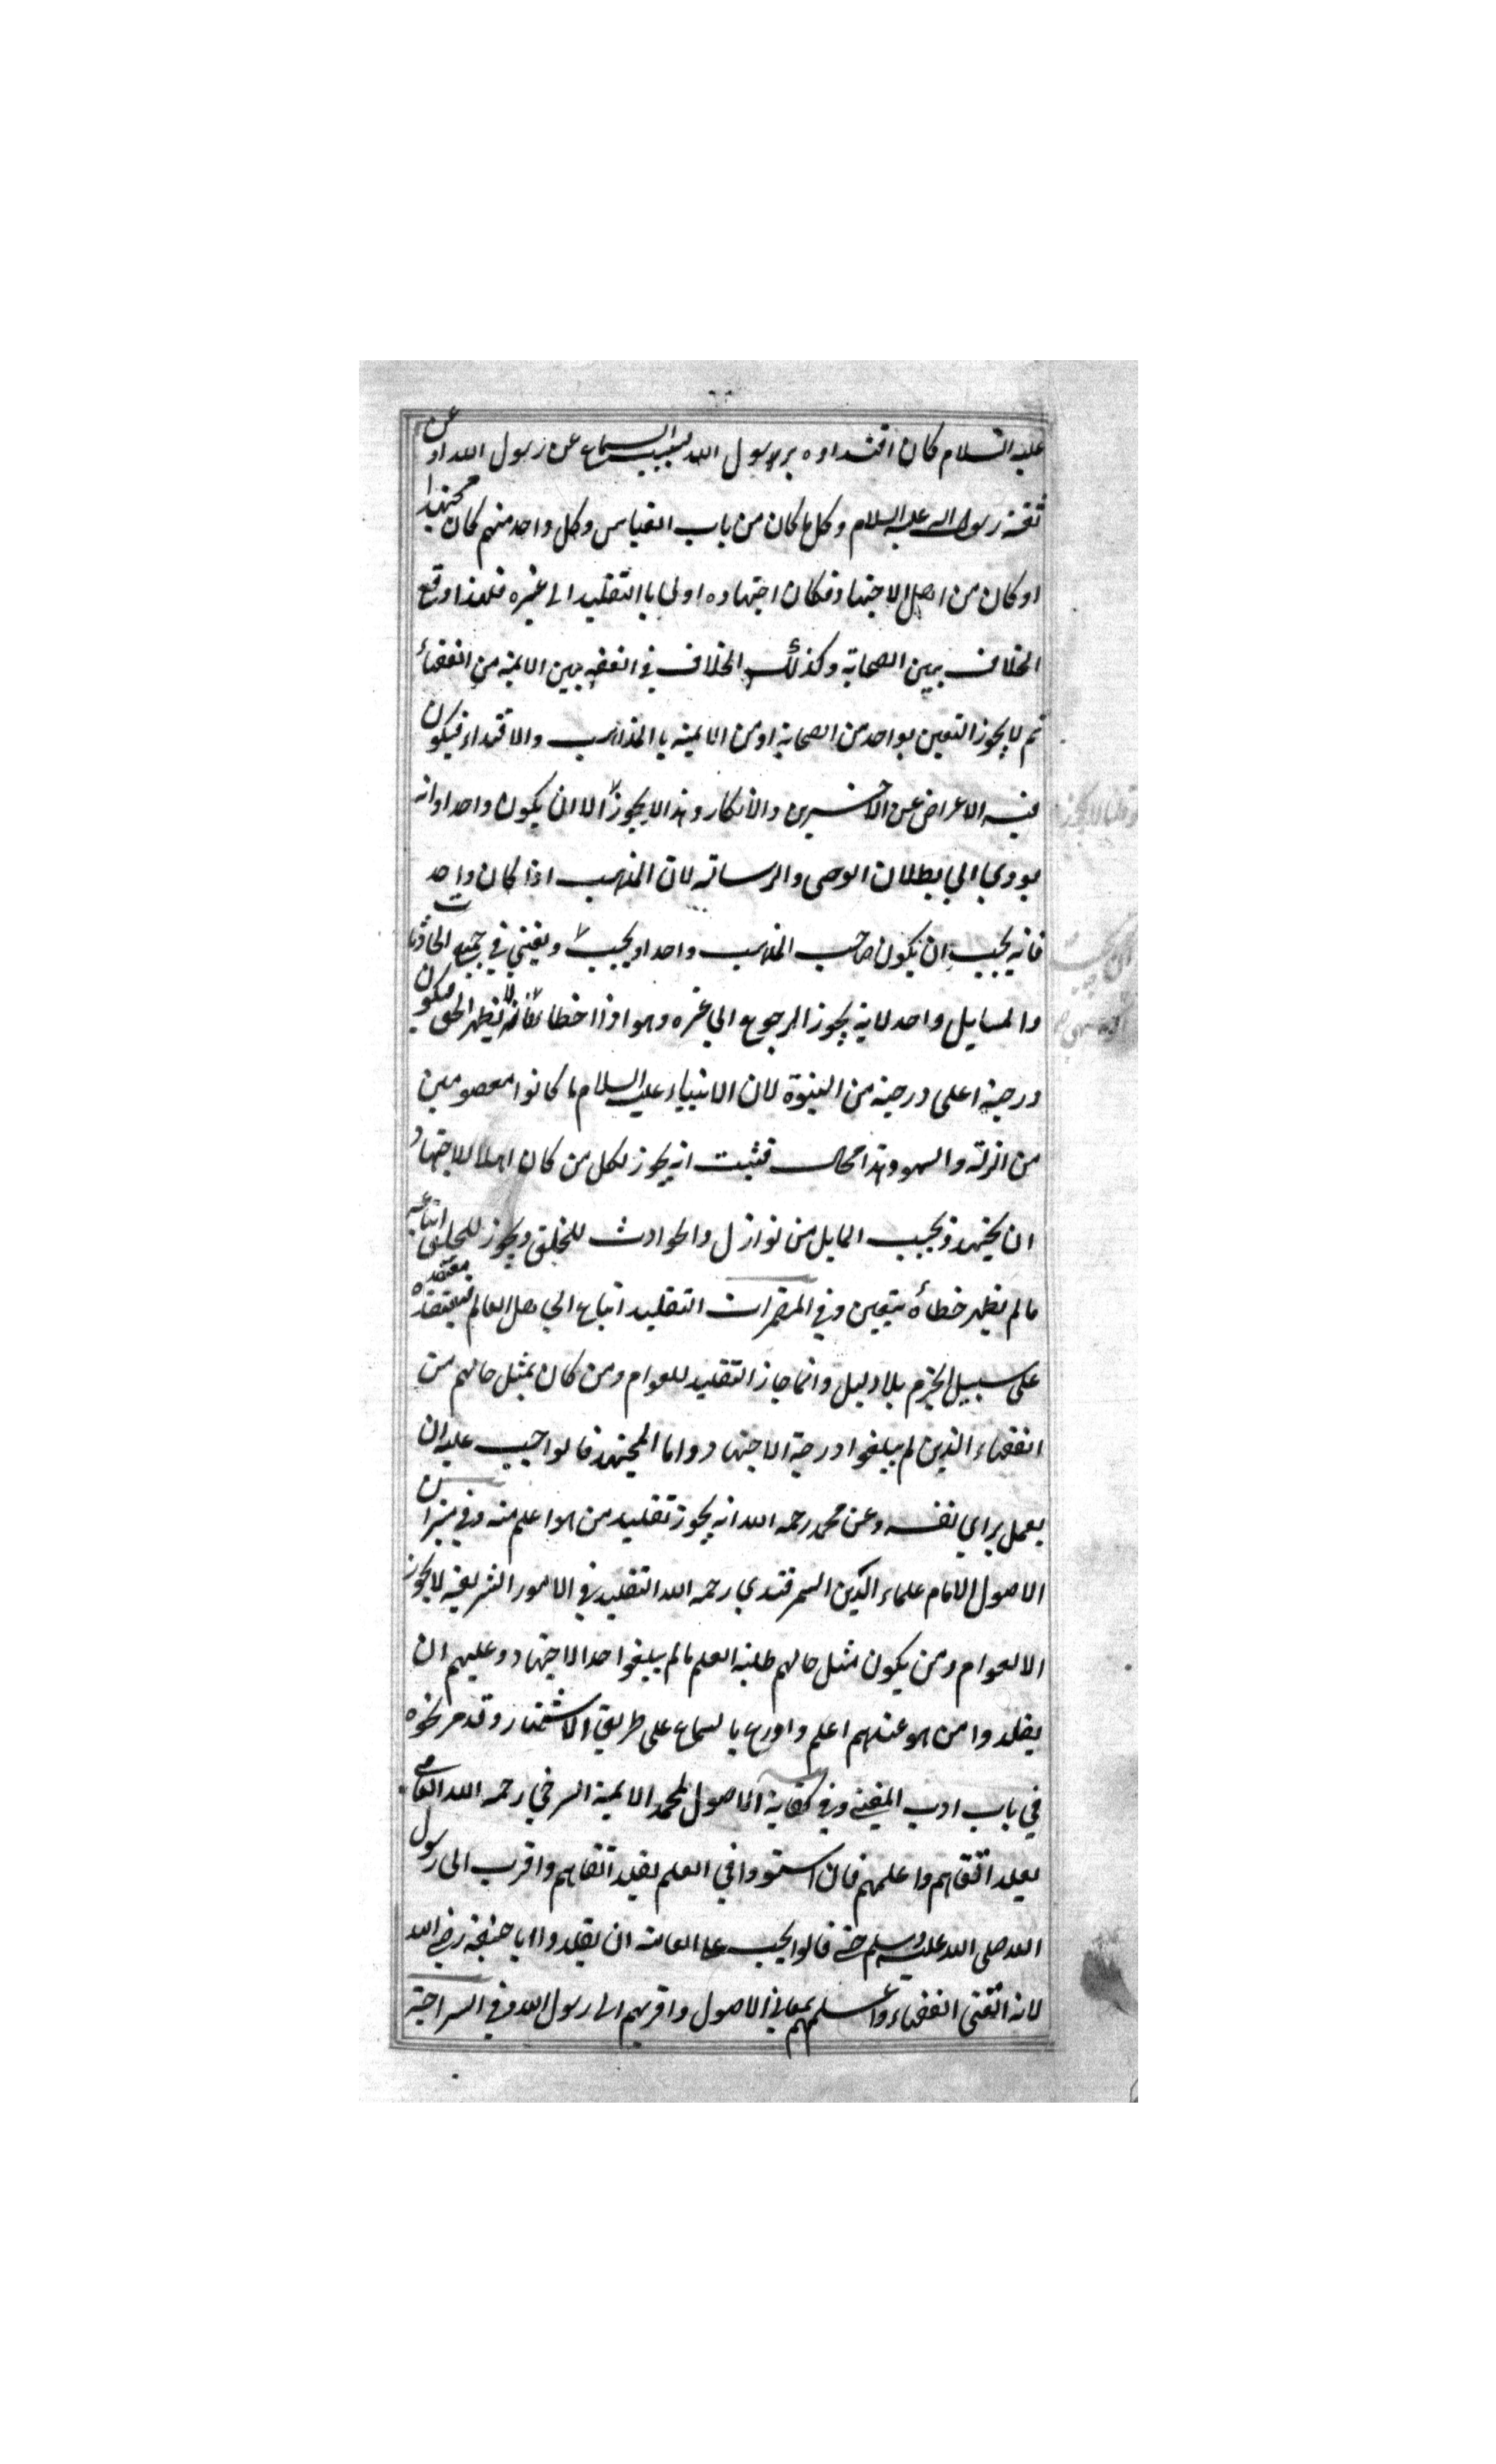 عليه السلام كان اقتداوه برسول الله بسبب السماع عن رسول الله او عن
ثقة رسول الله عليه السلام وكل ما كان من باب القياس وكل واحد منهم كان مجتهدا
او كان من اهل الاجتهاد فكان اجتهاده اولى باالتقليد الى غيره فلهذا وقع
الخلاف بين الصحابة وكذلك الخلاف في الفقه بين الايمة من الفقهاء
ثم لا يجوز التعين بواحد من الصحابة او من الايمة باالمذاهب والاقتداء فيكون
فيه الاعراض عن الاخرين والانكار وهذا لا يجوز الا ان يكون واحدا وانه
يودي الي بطلان الوصى والرسالة لان المذهب اذا كان واحد
فانه يجب ان يكون صاحب المذهب واحدا ويجيب ويفتي في جميع الحادثات
والمسايل واحد لانه يجوز الرجوع الي غيره وهو اذا اخطا فانه يظهر الحق فيكون
درجة اعلى درجة من النبوة لان الانبياء عليه السلام ما كانوا معصومين
من الزلة والسهو وهذا محال فثبت انه يجوز لكل من كان اهلا للاجتهاد
ان يجتهد ويجيب المايل من نوازل والحوادث للخلق ويجوز للخلق اتباعه
مالم يظهر خطاءه بيقين وفي المضمرات التقليد اتباع الجاهل العالم معتقده
على سبيل الجزم بلا دليل وانما جاز التقليد للعوام ومن كان بمثل حالهم من
الفقهاء الذين لم يبلغوا درجة الاجتهاد واما المجتهد فالواجب عليه ان
يعمل براي نفسه وعن محمد رحمه الله انه يجوز تقليد من هو اعلم منه وفي ميزان
الاصول الامام علماء الدين السمرقندي رحمه الله التقليد في الامور الشريعة لا يجوز
الا لعوام ومن يكون مثل حالهم طلبة العلم مالم يبلغوا حد الاجتهاد وعليهم ان
يقلدوا من هو عندهم اعلم واورع بالسماع على طريق الاشتهار وقد مر نحوه
في باب ادب المفتي وفي كفاية الاصول لمحمد الايمة السرخي رحمه الله العامي
يقلد اتقاهم واعلمهم فان استووا في العلم يقلد اتقاهم واقرب الى رسول
الله صلى الله عليه وسلم حتى قالوا يجب على العامة ان يقلدوا ابا حنيفة رضي الله
لانه اتقى الفقهاء واعلمهم بمعاني الاصول واقربهم الى رسول الله وفي السراجية